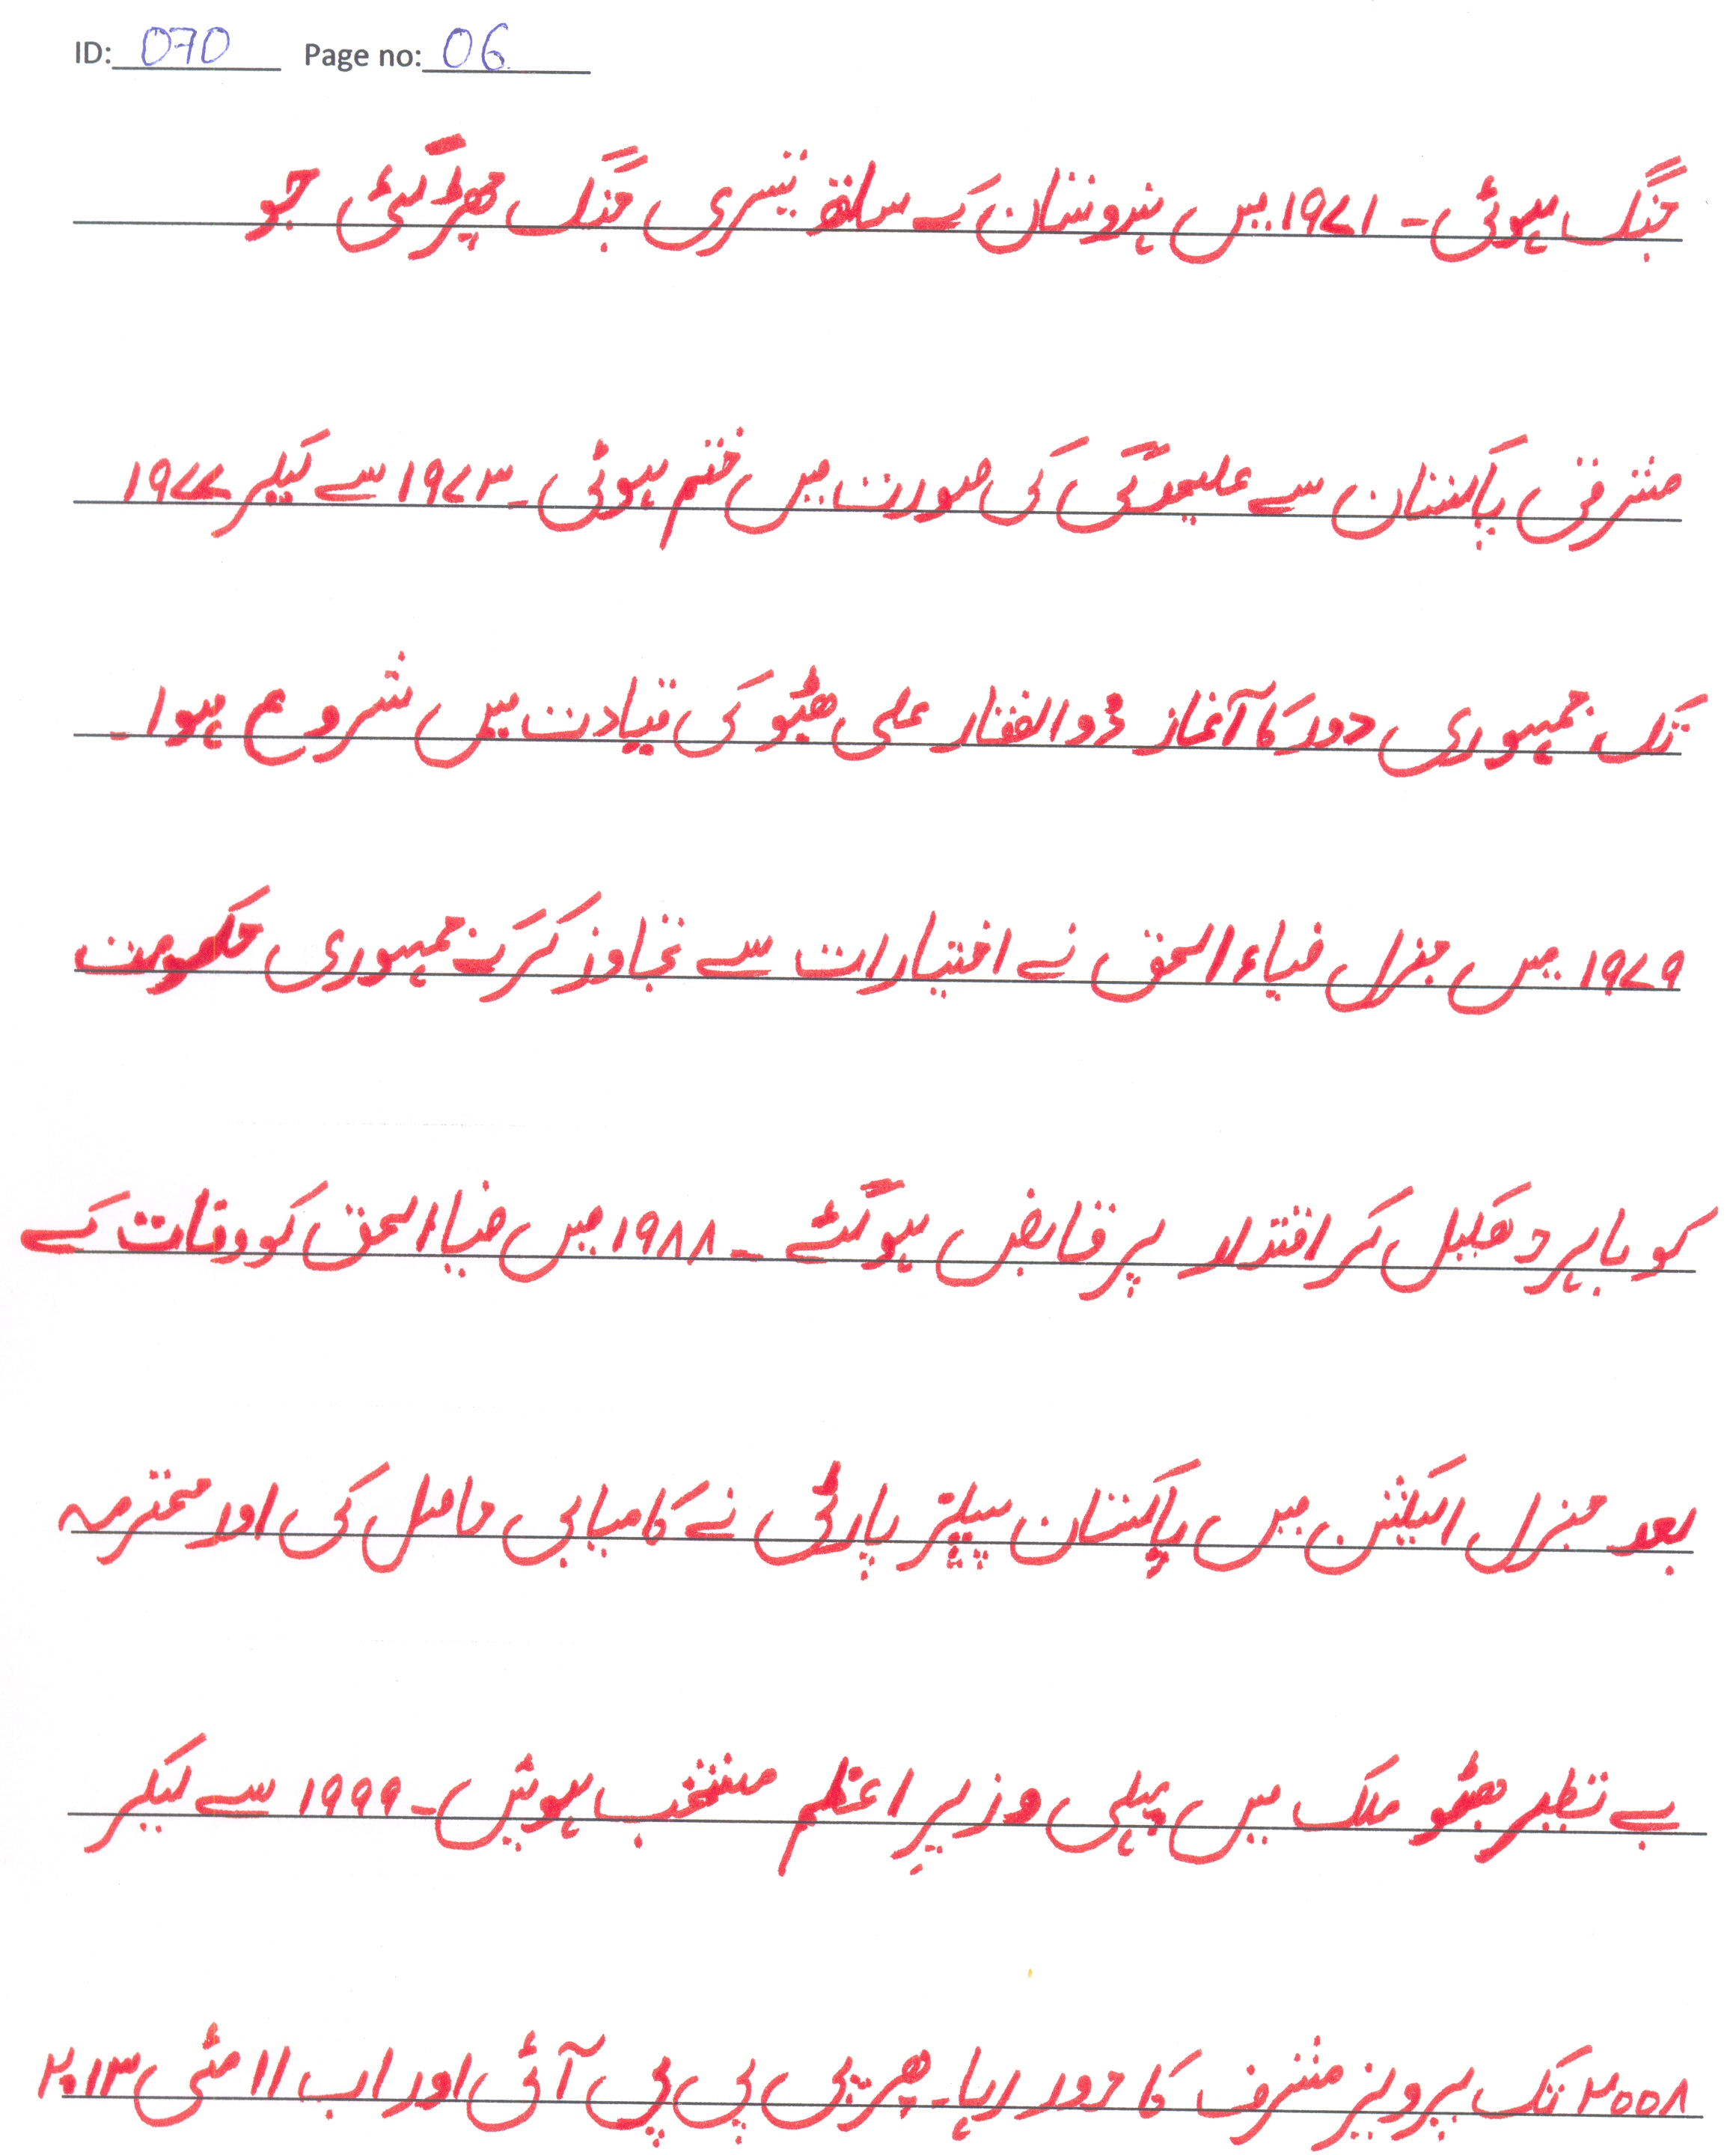 ID: 070 Page no: 06
جنگ ہوئی۔ ۱۹۷۱ میں ہندوستان کے ساتھ تیسری جنگ چھڑ گئی جو
مشرقی پاکستان سے علیحدگی کی صورت میں ختم ہوئی۔ ۱۹۷۳ سے لیکر ۱۹۷۷
تک جمہوری دور کا آغاز ذوالفقار علی بھٹو کی قیادت میں شروع ہوا۔
۱۹۷۹ میں جنرل ضیاء الحق نے اختیارات سے تجاوز کرکے جمہوری حکومت
کو باہر دھکیل کر اقتدار پر قابض ہوگئے۔ ۱۹۸۸ میں ضیا الحق کو وفات کے
بعد جنرل الیکشن میں پاکستان پیپلز پارٹی نے کامیابی حاصل کی اور محترمہ
بے نظیر بھٹو ملک میں پہلی وزیرِ اعظم منتخب ہوئیں۔ ۱۹۹۹ سے لیکر
۲۰۰۸ تک پرویز مشرف کا دور رہا۔ پھر پی پی پی آئی اور اب ۱۱ مئی ۲۰۱۳